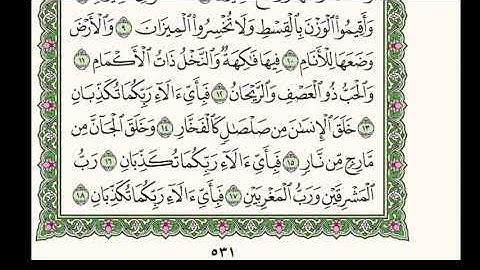 وَأَقِيمُوا۟ ٱلْوَزْنَ بِٱلْقِسْطِ وَلَا تُخْسِرُوا۟ ٱلْمِيزَانَ ٩ وَٱلْأَرْضَ
وَضَعَهَا لِلْأَنَامِ ١٠ فِيهَا فَٰكِهَةٌ وَٱلنَّخْلُ ذَاتُ ٱلْأَكْمَامِ ١١
وَٱلْحَبُّ ذُو ٱلْعَصْفِ وَٱلرَّيْحَانُ ١٢ فَبِأَىِّ ءَالَآءِ رَبِّكُمَا تُكَذِّبَانِ
١٣ خَلَقَ ٱلْإِنسَٰنَ مِن صَلْصَٰلٍ كَٱلْفَخَّارِ ١٤ وَخَلَقَ ٱلْجَآنَّ مِن
مَّارِجٍ مِّن نَّارٍ ١٥ فَبِأَىِّ ءَالَآءِ رَبِّكُمَا تُكَذِّبَانِ ١٦ رَبُّ
ٱلْمَشْرِقَيْنِ وَرَبُّ ٱلْمَغْرِبَيْنِ ١٧ فَبِأَىِّ ءَالَآءِ رَبِّكُمَا تُكَذِّبَانِ ١٨
٥٣١